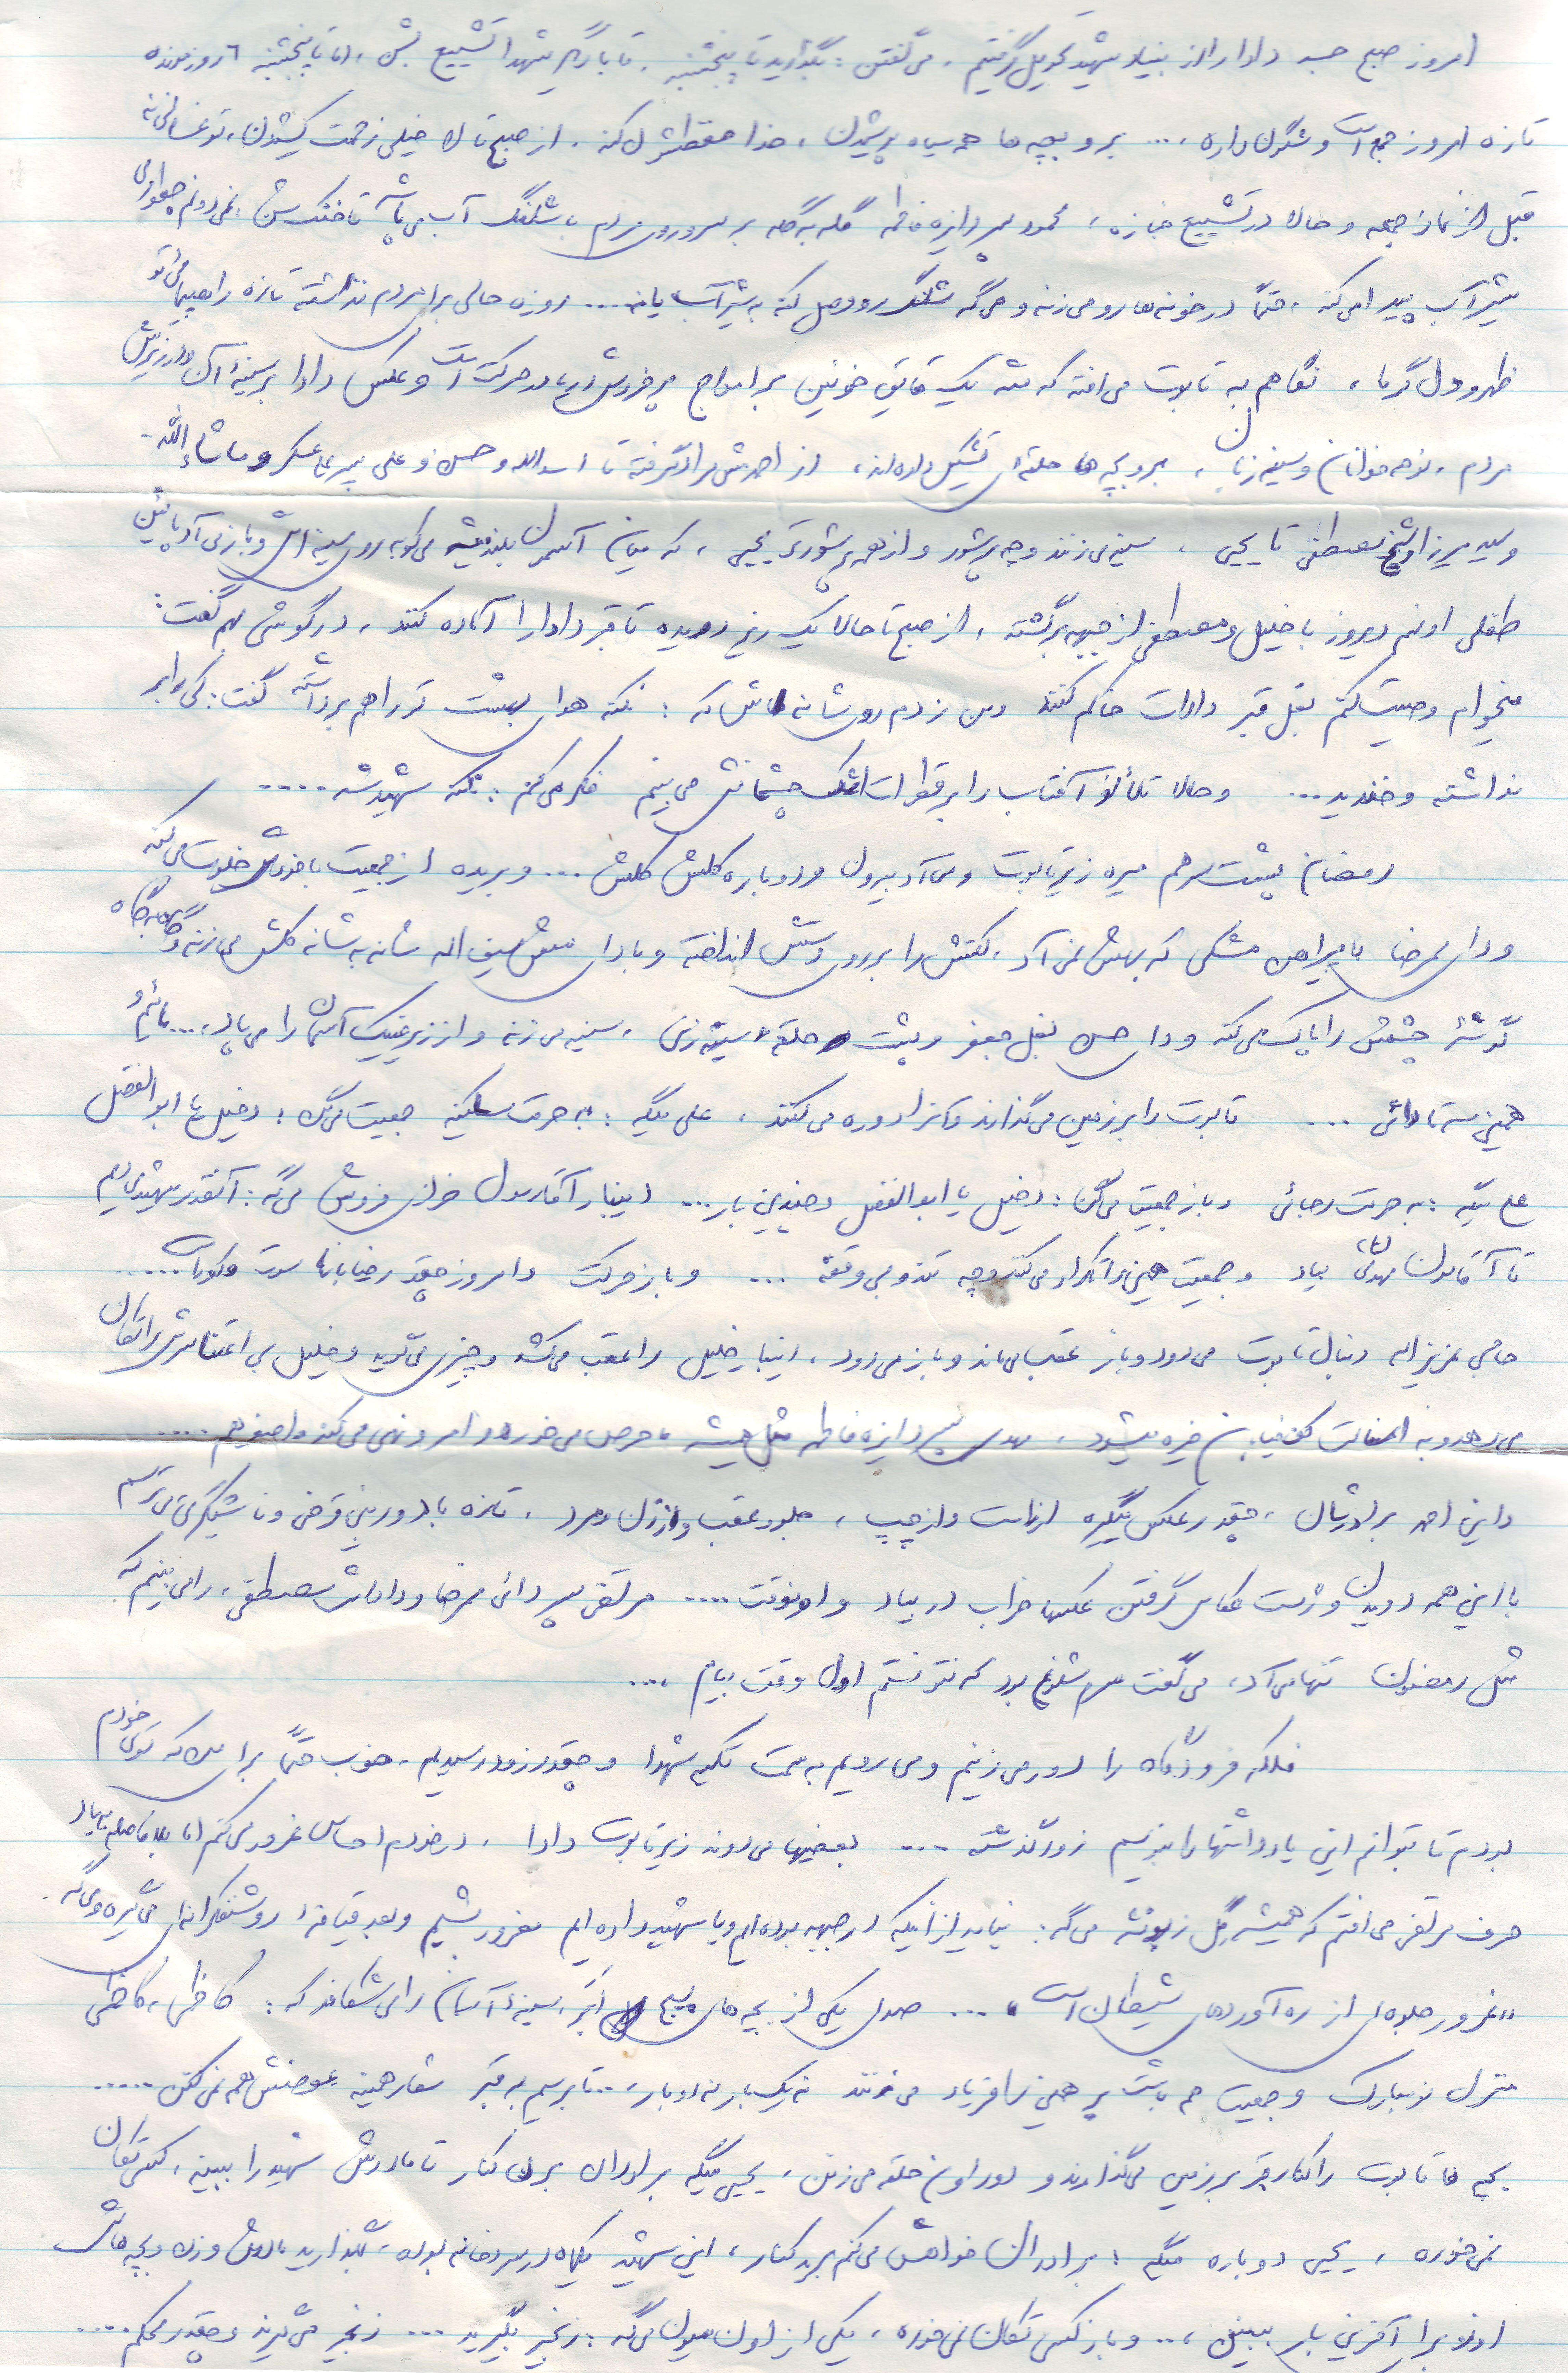 امروز صبح جسد دادا را از بنیاد شهید تحویل گرفتیم . می‌گفتن : بگذارید تا پنجشنبه . تا با دیگر شهدا تشییع بشن ، اما تا پنجشنبه ٦ روز مونده
تازه امروز جمع است و شگون داره ، ... بر و بچه ها همه سیاه پوشیدن ، خدا حفظشون کنه . از صبح تا حالا خیلی زحمت کشیدن ، تو غسالخونه
قبل از نماز جمعه و حالا در تشییع جنازه ، محمود پسر دایزه فاطمه گله به گله بر سر و روی مردم با شلنگ آب می‌پاشه تا خنک شن ، نمی‌دونم چطوری
شیر آب پیدا می‌کنه ، حتماً در خونه‌ها رو می‌زنه و می‌گه شلنگ رو وصل کنه به شیر آب یا نه ... روزه حالی برا مردم نذاشته تازه راهپیمائی تو
ظهر و دل گرما ، نگاهم به تابوت می‌افته که مثه یک قایق خونین بر امواج پر خروش دریا در حرکت است و عکس دادا بر سینه‌ٔ آن و در زیرش
مردم ، نوحه خوانان و سینه زنان ، بر و بچه ها حلقه‌ای تشکیل داده‌اند ، از احمدش مراد گرفته تا اسدالله و حسن و علی پسر عام عسکر و ماشاءالله
و سید میرزا و شیخ مصطفی تا یحیی ، سینه می‌زنند و چه پر شور و از همه پر شورتر یحیی ، که میان آسمون بلند میشه می‌کوبه روی سینه‌اش و باز می‌آد پائین
طفلی اونم دیروز با خلیل و مصطفی از جبهه برگشته ، از صبح تا حالا یک ریز دویده تا قبر دادا را آماده کنند ، در گوشی بهم گفت :
میخوام وصیت کنم بغل قبر دادات خاکم کنند و من زدم روی شانه‌اش که : نکنه هوای بهشت تو را هم برداشته گفت : کی را بر
نداشته و خندید ... و حالا تلألؤ آفتاب را بر قطرات اشک چشمانش می‌بینم فکر می‌کنم : نکنه شهید شه ....
رمضان پشت سر هم میره زیر تابوت و می‌آد بیرون و دوباره کلش کلش ... و بریده از جمعیت با خودش خلوت می‌کنه
و دای مرضا با پیراهن مشکی که بهش نمی‌آد ، کتش را بر روی دستش انداخته و با دای فیض سیف اله شانه به شانه کلش می‌زنه و گاه به گاه
گوشهٔ چشمش را پاک می‌کنه و دای حسن بغل جعفر و پشت حلقهٔ سینه زنی ، سینه می‌زنه و از زیر عینک آسمان را می‌پاد ، ... مائیم و
همین سه تا دائی ... تابوت را بر زمین می‌گذارند و آنرا دوره می‌کنند ، علی میگه : به حرمت سکینه جمعیت می‌گن : دخیل یا ابوالفضل
علی میگه : به حرمت رجائی و باز جمعیت می‌گن : دخیل یا ابوالفضل و چندین بار ... اینبار آقا رسول خرازی فروش می‌گه : آنقدر شهید می‌دیم
تا آقامون مهدی (عج) بیاد و جمعیت همین را تکرار می‌کنند و چه تند و بی وقفه ... و باز حرکت و امروز چقدر رضا بابا سوت و کوره .....
حاجی عزیز اله دنبال تابوت می‌دود و باز عقب می‌ماند و باز می‌دود ، اینبار خلیل را عقب می‌کشد و چیزی می‌گوید و خلیل بی اعتنا سرش را تکان
می‌دهد و به آسفالت کف خیابان خیره میشود ، مهدی پسر دایزه فاطمه مثل همیشه ، حرص می‌خوره و امر و نهی می‌کند و اصغر هم ....
و این احمد برادریان ، چقدر عکس میگیره از راست و از چپ ، جلو و عقب و از زن و مرد ، تازه با دوربین قرضی و ناشیگری می‌ترسم
با این همه دویدن و ژست عکاسی گرفتن عکسها خراب در بیاد و اونوقت .... مرتضی پسر دائی مرضا و داداش مصطفی ، را می‌بینم که
مثل رمضون تنها می‌آد ، می‌گفت سرم شلوغ بود که نتونستم اول وقت بیام ....
فلکه فرودگاه را دور می‌زنیم و می‌رویم به سمت تکیه شهدا و چقدر زود رسیدیم . خوب حتماً برا من که توی خودم
بودم تا بتوانم این یادداشتها را بنویسم زود گذشته ... بعضیها می‌دوند زیر تابوت دادا ، در خودم احساس غرور می‌کنم اما بلافاصله به یاد
حرف مرتضی می‌افتم که همیشه گل زبونشه می‌گه : نباید از اینکه در جبهه بوده‌ایم و یا شهید داده‌ایم مغرور بشیم و بعد قیافه‌ٔ روشنفکرانه‌ای می‌گیره و می‌گه :
« غرور جلوه‌ای از ره آوردهای شیطان است » ... صدای یکی از بچه های بسیج سینهٔ آسمان را می‌شکافد که : کاظمی ، کاظمی
منزل نو مبارک و جمعیت هم پشت سر همین را فریاد می‌زنند نه یک بار نه دو بار ، ... تا برسیم به قبر شعار همینه عوضش هم نمی‌کنن .....
بچه ها تابوت را کنار قبر بر زمین می‌گذارند و دور اون حلقه می‌زنن ، یحیی میگه برادرای برن کنار تا مادرش شهید را ببینه ، کسی تکان
نمی‌خوره ، یحیی دوباره میگه : برادران خواهش می‌کنم برید کنار ، این شهید یکماه در سردخانه بوده ، بگذارید مادرش و زن و بچه هاش
اونو برا آخرین بار ببینن ، ... و باز کسی تکان نمی‌خوره ، یکی از اون میون می‌گه : زنجیر بگیرید ... زنجیر می‌گیرند و چقدر محکم ....